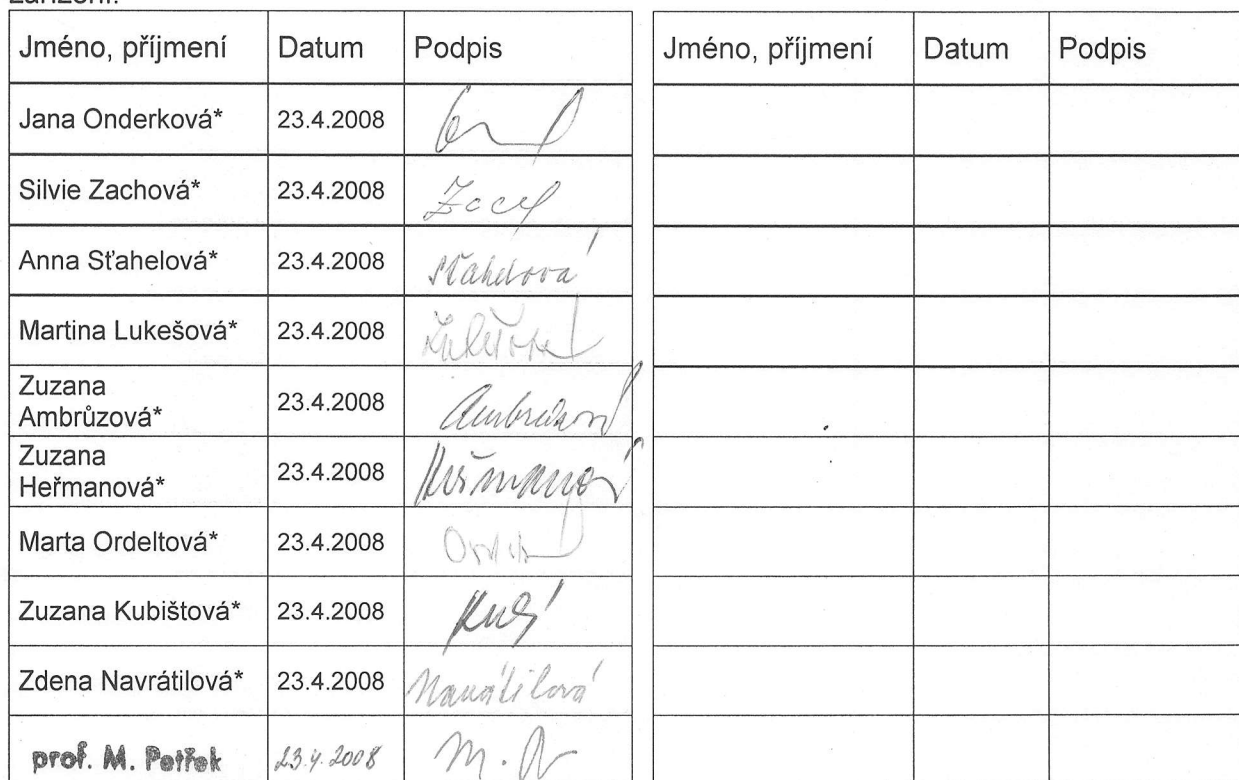 Jméno, příjmení Datum Podpis Jméno, příjmení Datum Podpis
Jana Onderková* 23.4.2008
Silvie Zachová* 23.4.2008 Zach
Anna Sťahelová* 23.4.2008 Sťahelová
Martina Lukešová* 23.4.2008 Lukešová
Zuzana
Ambrůzová* 23.4.2008 Ambrůzová
Zuzana
Heřmanová* 23.4.2008 Heřmanová
Marta Ordeltová* 23.4.2008
Zuzana Kubištová* 23.4.2008
Zdena Navrátilová* 23.4.2008 Navrátilová
prof. M. Petřek 23.4.2008